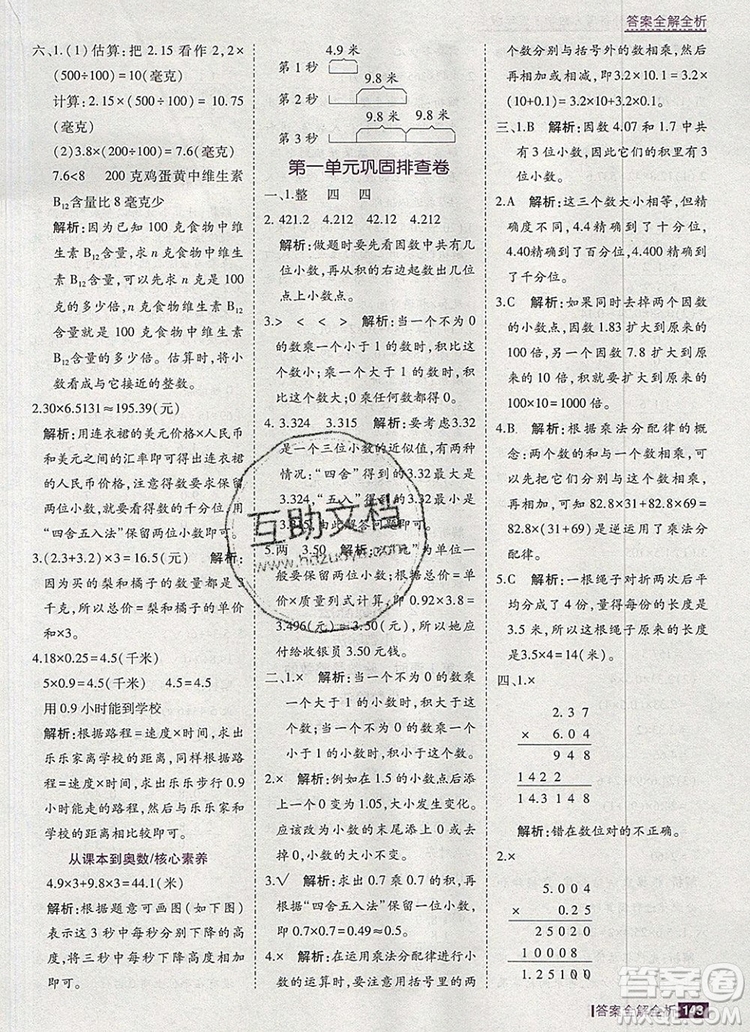 答案全解全析
六、1.(1)估算:把2.15看作2,2×
(500÷100)=10(毫克)
计算:2.15×(500÷100)=10.75
(毫克)
(2)3.8×(200÷100)=7.6(毫克)
7.6<8 200克鸡蛋黄中维生素
B12含量比8毫克少
解析:因为已知100克食物中维生
素B12含量,求n克食物中维生素
B12的含量,要先求出n克食物中
有多少个100克食物,再乘100克
食物中维生素B12含量,即求出维生
素B12含量的多少。估算时,可以把
B12含量看成与它接近的整数。
2.30×6.5131≈195.39(元)
解析:用连衣裙的美元价格×人民币
和美元之间的汇率即可求出人民币
价格。因为人民币的最小单位是分,
用“四舍五入法”保留两位小数。
3.(2.3+3.2)×3=16.5(元) 解析:
因为买的梨和橘子的数量都是3
千克,所以总价是梨和橘子的单价
和×3。
4.18×0.25=4.5(千米)
5×0.9=4.5(千米) 4.5=4.5
用0.9小时能到学校
解析:根据路程=速度×时间,求出
乐乐家离学校的距离,同样根据路
程=速度×时间,求出乐乐开车0.9
小时能走的路程,然后与乐乐家和
学校的距离比较即可。
从课本到奥数/核心素养
4.9×3+9.8×3=44.1(米)
解析:根据题意可画图(如下图)
表示这3秒每秒分别下降的高度,
将三秒下降的高度分别相加求和
即可。
4.9米
第1秒
9.8米
第2秒
9.8米 9.8米
第3秒
第一单元巩固排查卷
一、1.整 四 四
2.421.2 4.212 42.12 4.212
解析:做题时要先看因数中共有几
位小数,再从积的右边起数出几位
点上小数点。
3.> < < > 解析:当一个不为0
的数乘一个小于1的数时,积比原来
的数小;当一个不为0的数乘一个
大于1的数时,积比原来的数大。
0乘任何数都得0。
4.3.324 3.315 解析:要考虑3.32
是一个三位小数的近似值,有两种
情况:“四舍”得到的3.32最大是
3.324,“五入”得到的3.32最小是
3.315。
5.两 3.50 解析:以“元”为单位一
般要保留两位小数;根据总价=单
价×质量列式计算,即0.92×3.8=
3.496(元)≈3.50(元),所以应
付给收银员3.50元钱。
二、1.× 解析:当一个不为0的数乘
一个大于1的数时,积大于这个数;
当一个不为0的数乘一个小于1
的数时,积小于这个数。
2.× 解析:例如在1.5的小数点后面
添上1个0变为1.05,大小发生变化。
应该改为小数的末尾添上或去掉
0,大小不变。
3.√ 解析:求出0.7乘0.7的积,再
根据“四舍五入法”保留一位小数,
即0.7×0.7=0.49≈0.5。
4.× 解析:在运用乘法分配律进行小
数的运算时,要注意用括号里的两
个数分别与括号外的数相乘,然后
再相加或相减,即3.2×10.1=3.2×
(10+0.1)=3.2×10+3.2×0.1。
三、1.B 解析:因数4.07和1.7中共
有3位小数,所以它们的积里也应
有3位小数。
2.A 解析:这三个数大小相等,但计
数单位不同,4.4精确到了十分位,
4.40精确到了百分位,4.400精确
到了千分位。
3.C 解析:如果同时去掉两个因数
的小数点,因数1.83扩大到原来的
100倍,因数0.5扩大到原来的10
倍,所以积扩大到原来的
1000倍。
4.B. 解析:根据乘法分配律的概
念:两个数的和与一个数相乘,可以
先把它们与这个数分别相乘,再相
加可知,82.8×31+82.8×69=82.8×
(31+69)是逆运用了乘法分
配律。
5.C 解析:一根绳子对折再对折即
平均分成了4份,每份的长度是
3.5米,所以这根绳子原来的长度是
3.5×4=14(米)。
四、1.×
2.37
× 6.04
948
1422
14.3148
解析:错在数位对的不正确。
2.×
5.004
× 0.25
25020
10008
1.25100
互助文档
www.hdzuoye.com
答案圈
MXQE.COM
答案全解全析 143